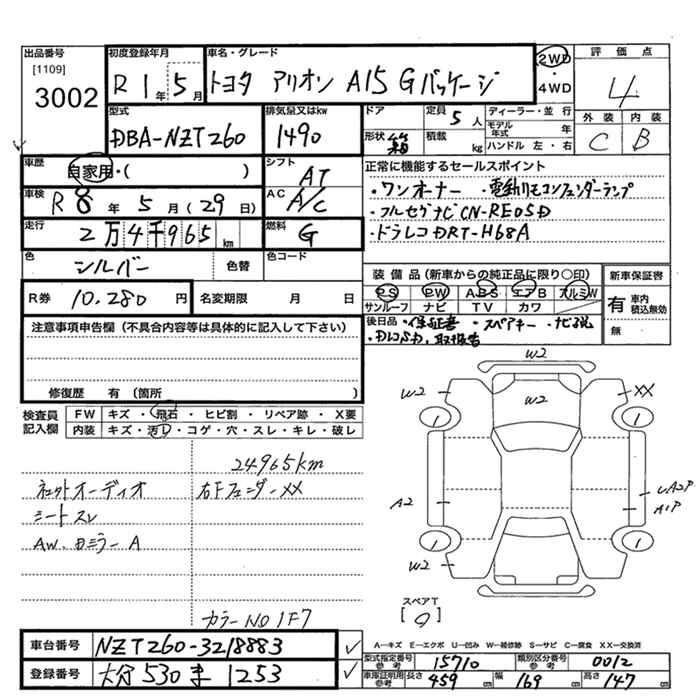 出品番号
[1109]
3002
初度登録年月
R1年5月
車名・グレード
トヨタ アリオン A15 Gパッケージ
2WD
・
4WD
評価点
4
外装 内装
C B
型式
DBA-NZT260
排気量又はkw
1490
ドア
形状 箱
定員 5人
積載 kg
ディーラー・並行
モデル年式 年
ハンドル 左・右
車歴
自家用・( )
シフト
AT
車検
R8年5月(29日)
AC
A/C
走行
2万4千965km
燃料
G
色
シルバー
色替
色コード
R券 10,280円
名変期限 月 日
正常に機能するセールスポイント
・ワンオーナー ・電動リモコンフェンダーランプ
・フルセグナビCN-RE05D
・ドラレコDRT-H68A
装備品(新車からの純正品に限り○印)
PS PW ABS エアB アルミW
サンルーフ ナビ TV カワ
新車保証書
有 車内積込無効
無
後日品 ・保証書 ・スペアキー ・ナビ説
・DレコSD,取報告
注意事項申告欄(不具合内容等は具体的に記入して下さい)
修復歴 有(箇所 )
検査員記入欄
FW キズ・飛石・ヒビ割・リペア跡・X要
内装 キズ・汚D・コゲ・穴・スレ・キレ・破レ
24965km
ネットオーディオ 右Fフェンダーxx
シートスレ
AW、Dミラー A
カラーNO 1F7
W2
W2
W2
XX
1
1
A2
UA2P
A1P
1
1
W2
スペアT
[9]
A―キズ E―エクボ U―凹み W―補修跡 S―サビ C―腐食 XX―交換済
車台番号 NZT260-3218883
登録番号 大分 530 ま 1253
型式指定番号 参考 15710
類別区分番号 参考 0012
車庫証明用 参考 長さ 459cm 幅 169cm 高さ 147cm